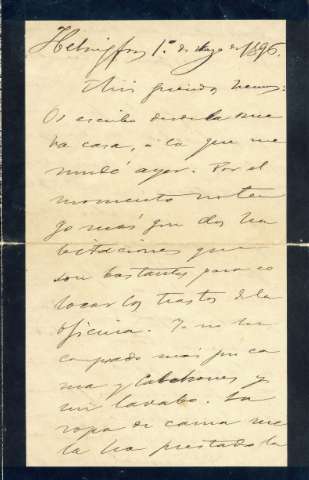 Helsingfors 1º de Mayo de 1896.
Mis queridos hermos:
Os escribo desde la nue
va casa, a la que me
mudé ayer. Por el
momento no ten
go mas que dos ha
bitaciones que
son bastantes para co
locar los trastos de la
oficina. Yo no he
comprado mas que ca
ma y colchones y
un lavabo. La
ropa de cama me
la ha prestado la